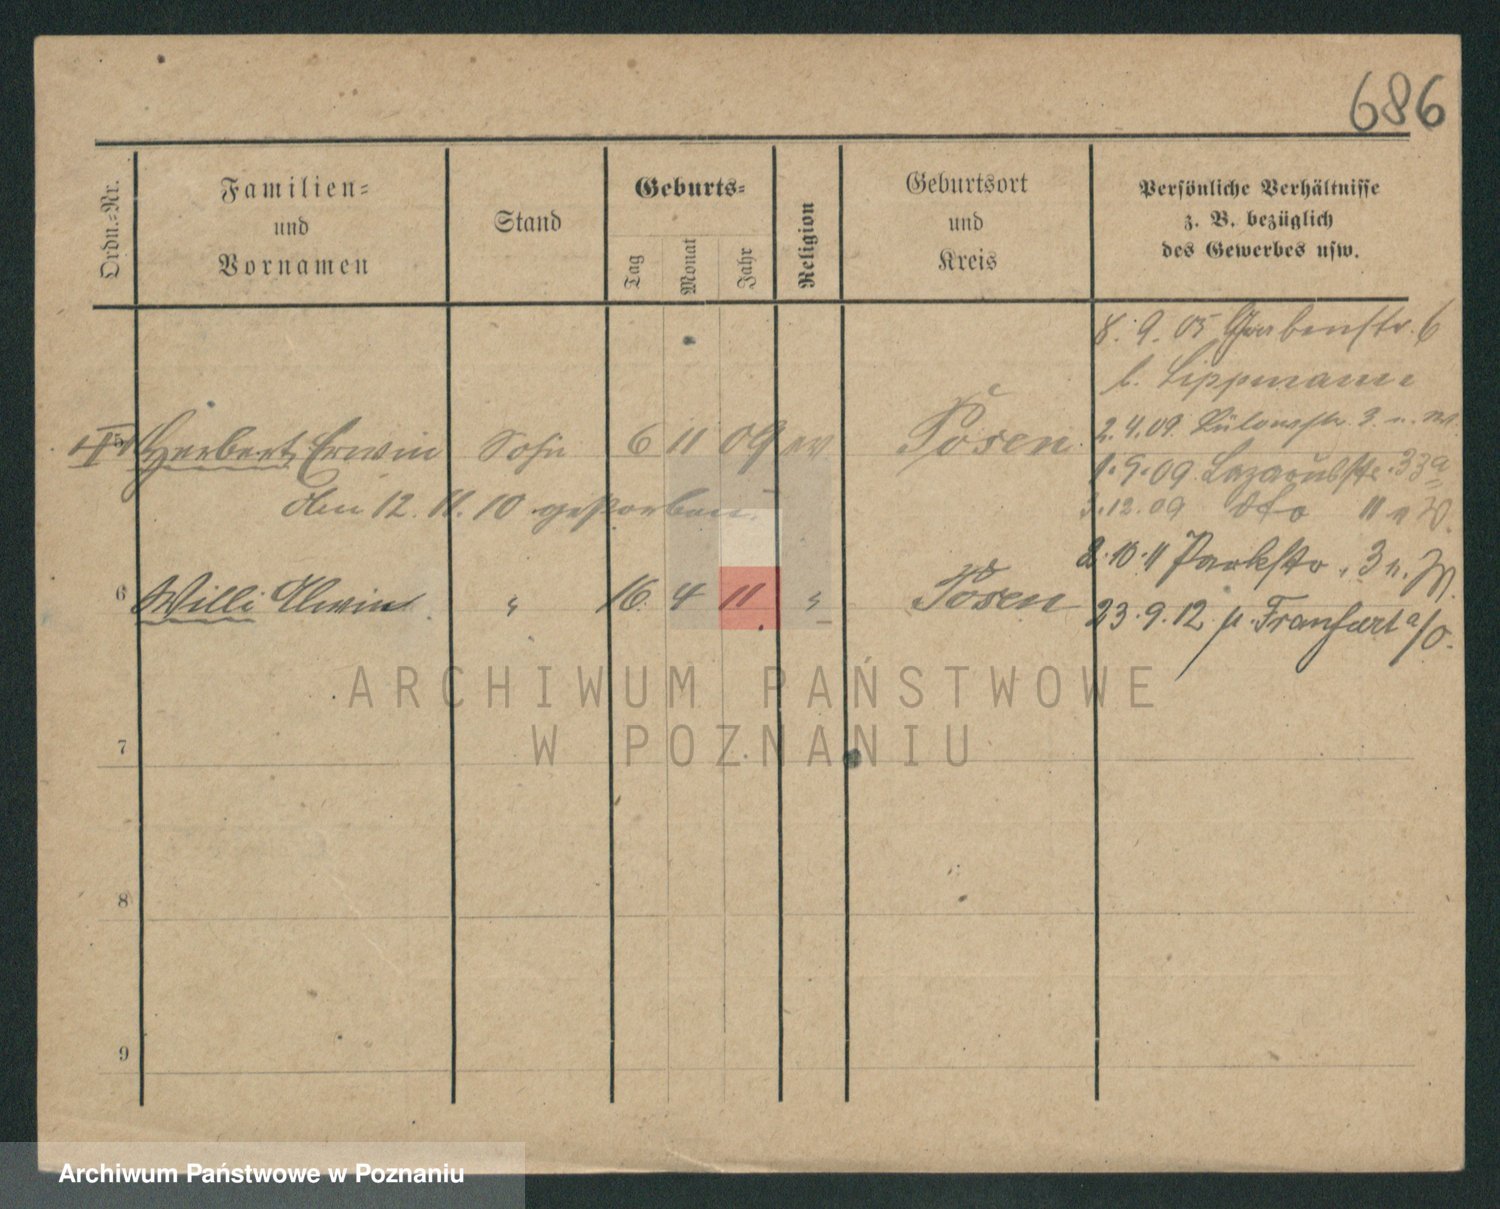 686
Ordn.=Nr.
Familien=
und
Vornamen
Stand
Geburts=
Tag
Monat
Jahr
Religion
Geburtsort
und
Kreis
Persönliche Verhältnisse
z. B. bezüglich
des Gewerbes usw.
8.9.05 Grabenstr. 6
b. Lippmann
5 Herbert, Erwin Sohn 6 11 09 ev Posen
2.4.09 Bülowstr. 3 n. W.
1.9.09 Lazarusstr. 33a
den 12.11.10 gestorben.
3.12.09 dto 11 n W.
2.10.11 Parkstr. 3 n. W.
6 Willi Erwin " 16 4 11. " Posen
23.9.12 n. Frankfurt a/O.
7
8
9
ARCHIWUM PAŃSTWOWE
W POZNANIU
Archiwum Państwowe w Poznaniu